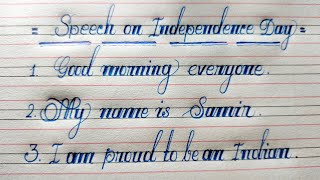 = Speech on Independence Day =
1. Good morning everyone.
2. My name is Samir.
3. I am proud to be an Indian.